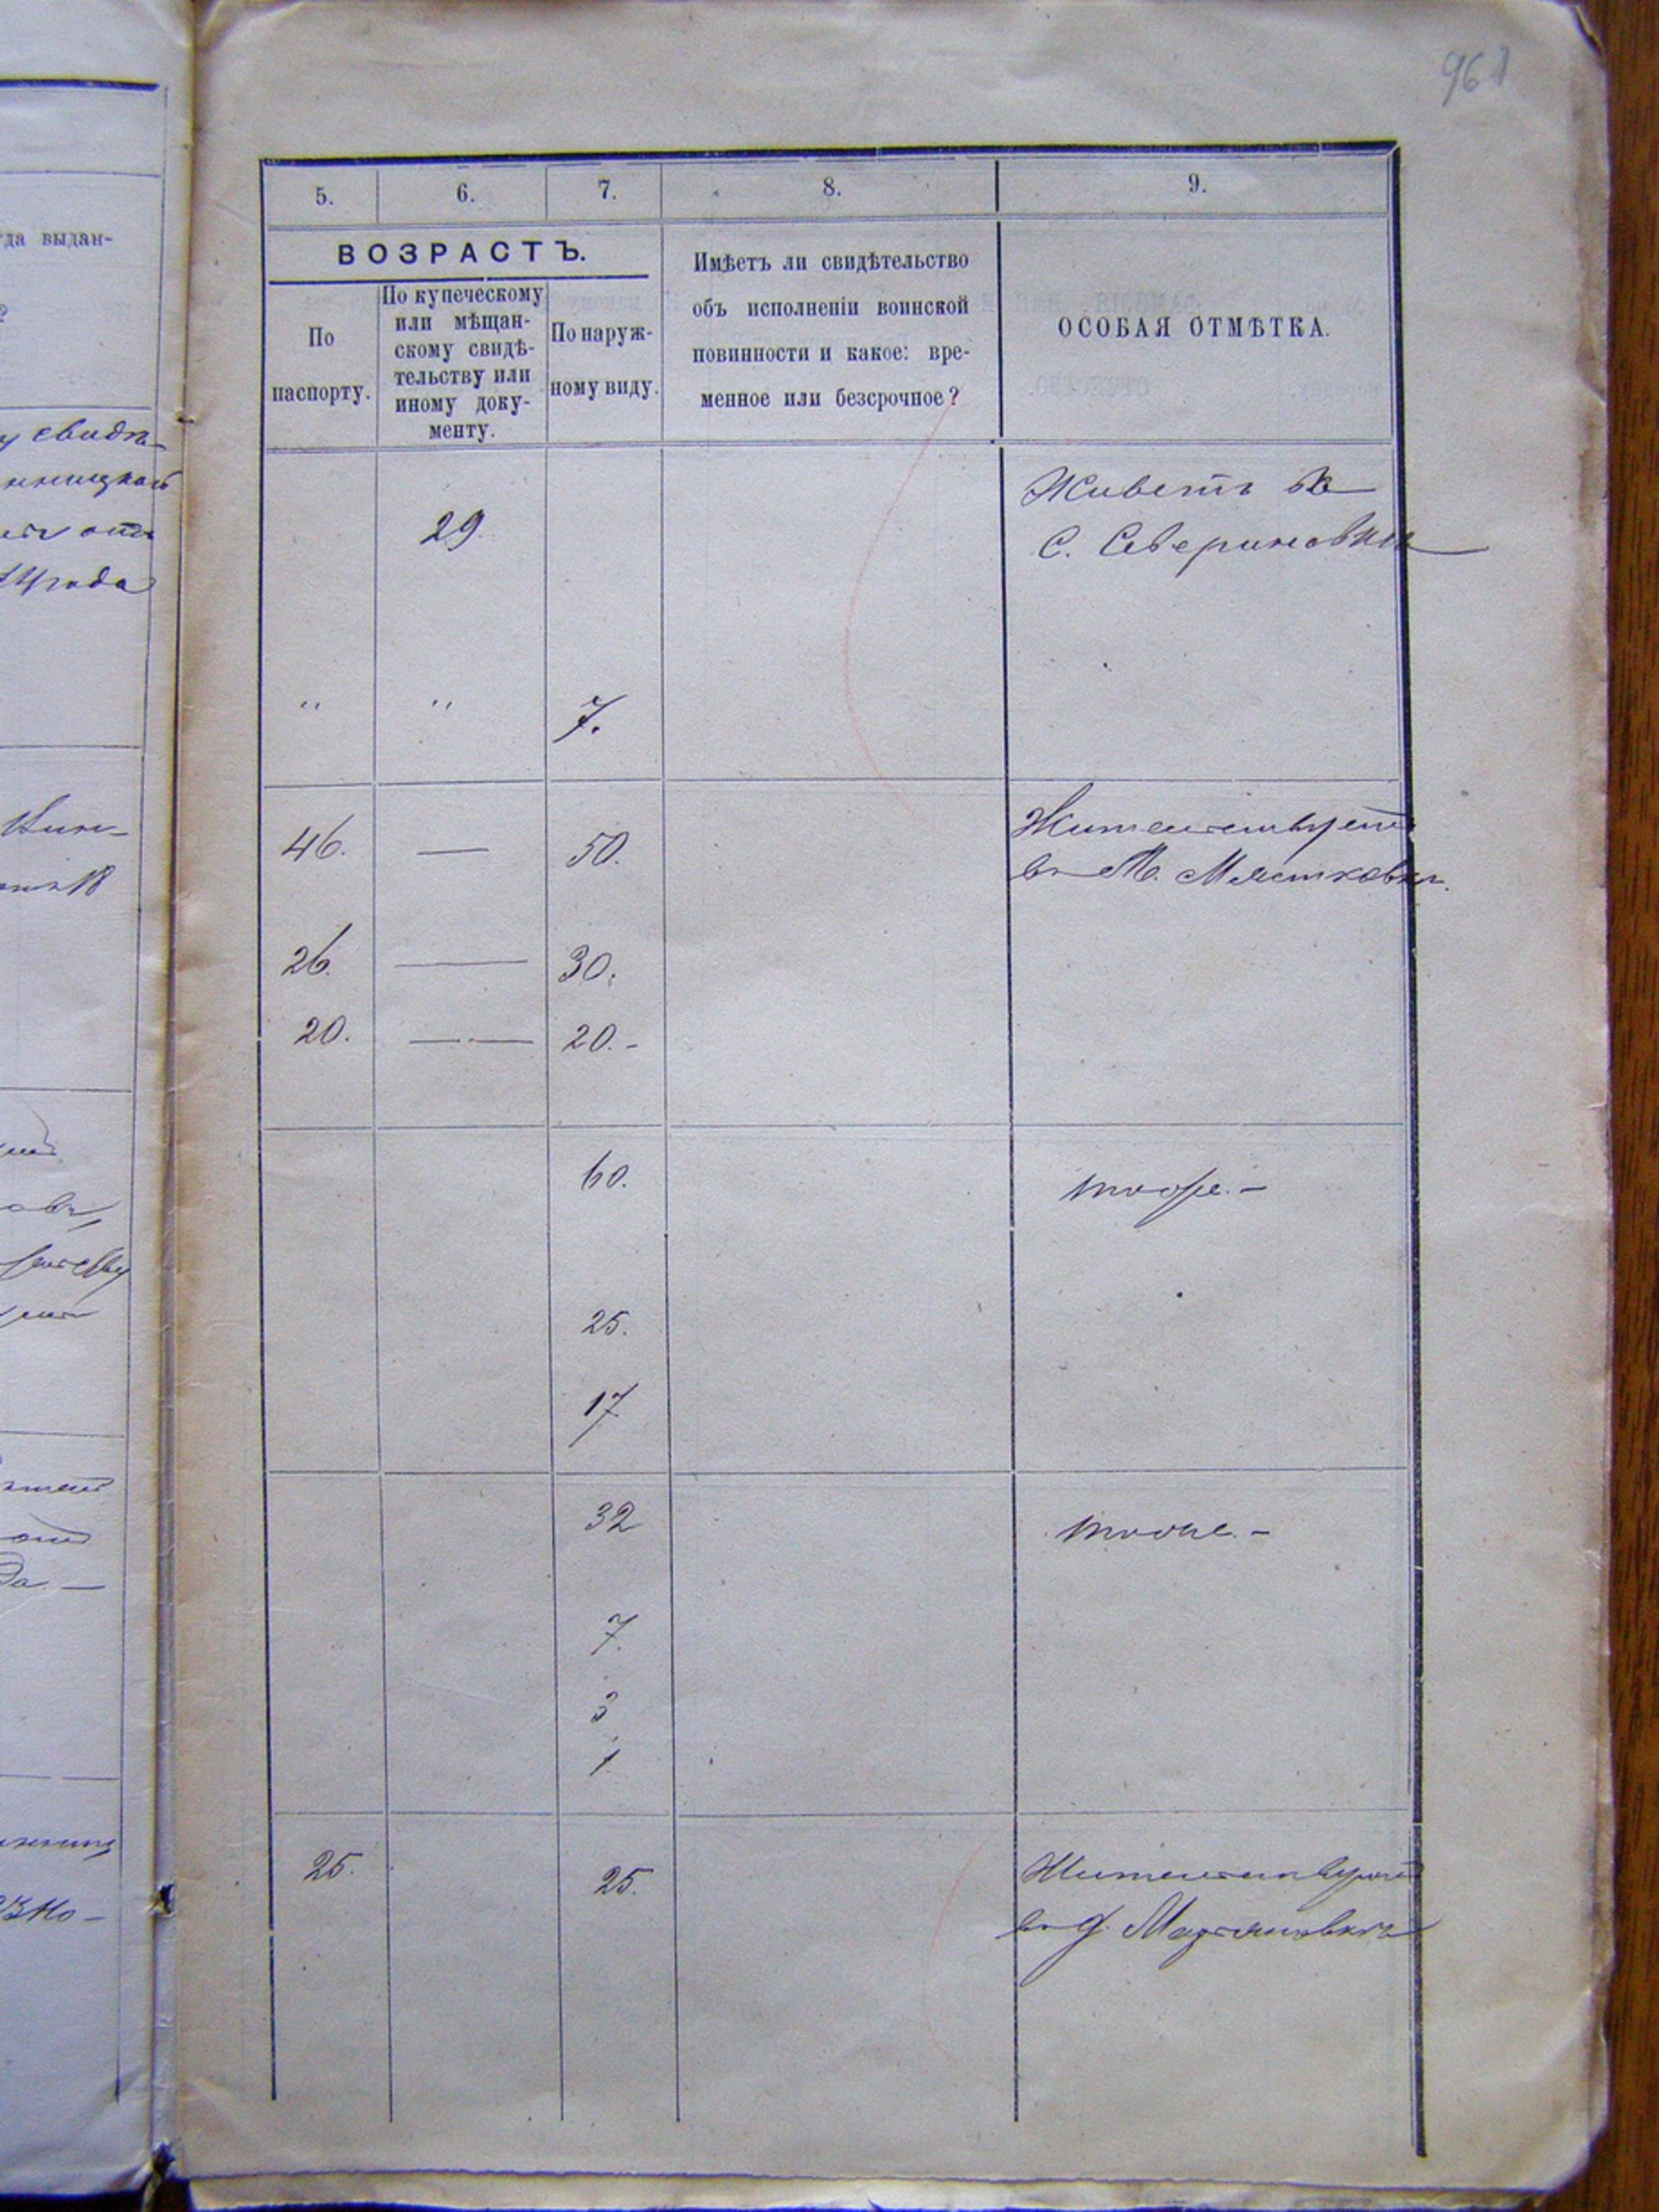 961
да выдан-
?
5. 6. 7. 8. 9.
ВОЗРАСТЪ.
По
паспорту.
По купеческому
или мѣщан-
скому свидѣ-
тельству или
иному доку-
менту.
По наруж-
ному виду.
Имѣетъ ли свидѣтельство
объ исполненіи воинской
повинности и какое: вре-
менное или безсрочное?
ОСОБАЯ ОТМѢТКА.
у свидѣ-
года
29.
Живетъ въ
С. Севериновки
" " 7.
46. — 50.
Жительствуетъ
въ М. Мястковки.
26. — 30.
20. — 20.-
60. тоже.-
25.
17
32 тоже.-
7.
3
1
25. 25.
Жительствуетъ
въ д. Марьяновкѣ